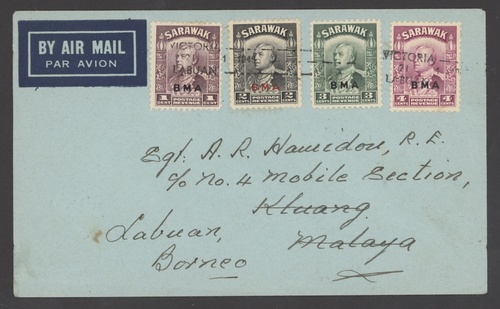 BY AIR MAIL
PAR AVION
SARAWAK
BMA
1 CENT POSTAGE REVENUE 1 CENT
SARAWAK
BMA
2 CENTS POSTAGE REVENUE 2 CENTS
SARAWAK
BMA
3 CENTS POSTAGE REVENUE 3 CENTS
SARAWAK
BMA
4 CENTS POSTAGE REVENUE 4 CENTS
VICTORIA
LABUAN
VICTORIA
21
Sgt. A. R. Hamidon, R.E.
c/o No. 4 Mobile Section,
Kluang
Malaya
Labuan,
Borneo